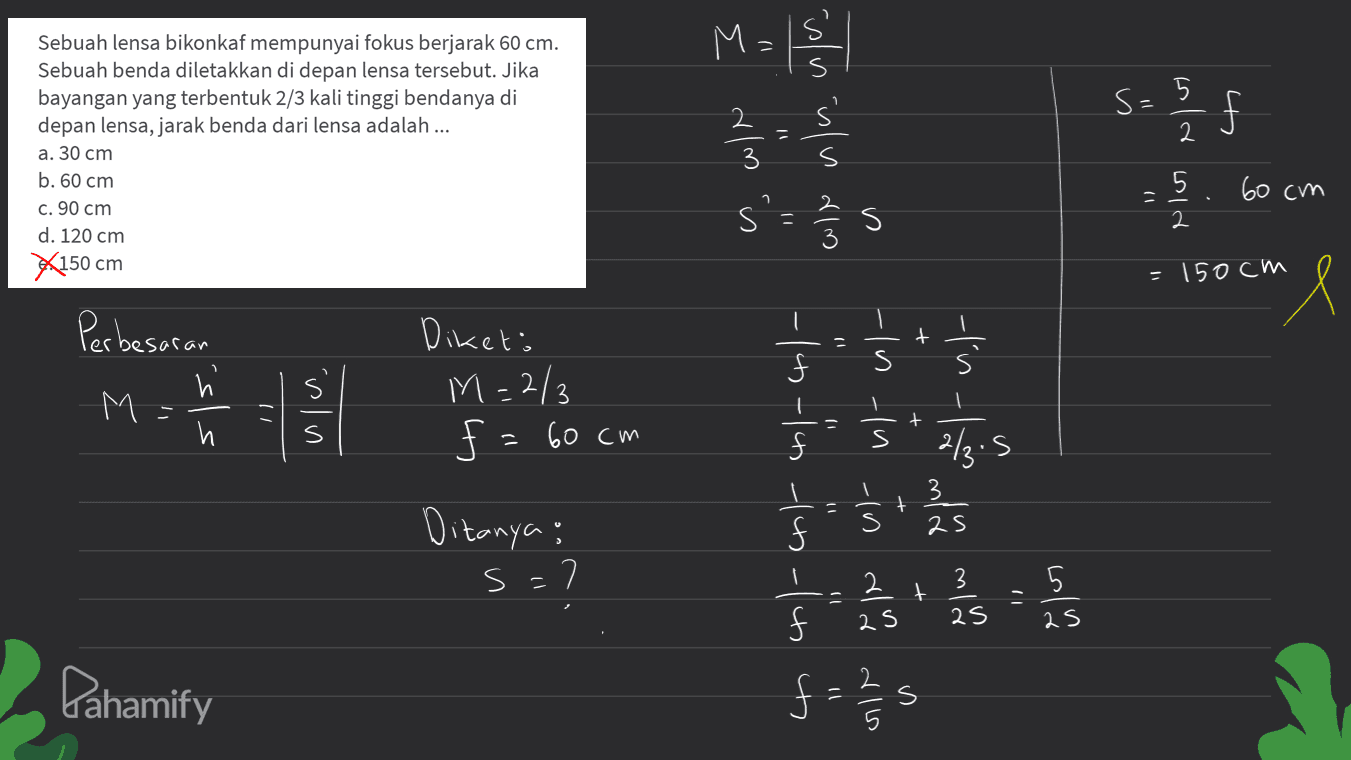 Sebuah lensa bikonkaf mempunyai fokus berjarak 60 cm.
Sebuah benda diletakkan di depan lensa tersebut. Jika
bayangan yang terbentuk 2/3 kali tinggi bendanya di
depan lensa, jarak benda dari lensa adalah ...
a. 30 cm
b. 60 cm
c. 90 cm
d. 120 cm
e. 150 cm
Perbesaran
M = h'/h = |s'/s|
Diket:
M = 2/3
f = 60 cm
Ditanya:
s = ?
M = |s'/s|
2/3 = s'/s
s' = 2/3 s
1/f = 1/s + 1/s'
1/f = 1/s + 1/2/3.s
1/f = 1/s + 3/2s
1/f = 2/2s + 3/2s = 5/2s
f = 2/5 s
s = 5/2 f
= 5/2 . 60 cm
= 150 cm
Pahamify